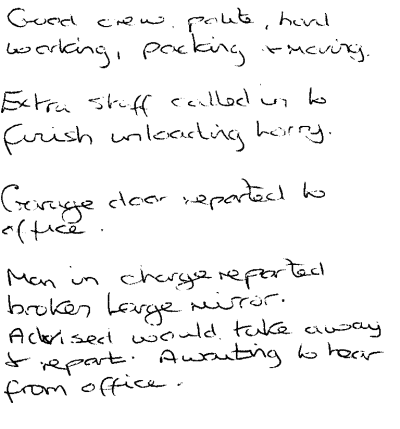 Good crew, polite, hard
working, packing + moving.
Extra staff called in to
finish unloading lorry.
Garage door reported to
office.
Man in charge reported
broken large mirror.
Advised would take away
& report. Awaiting to hear
from office.